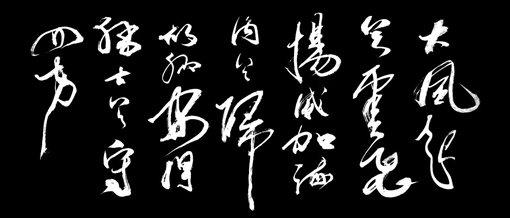 大風起
兮雲飛
揚威加海
內兮歸
故鄉安得
猛士兮守
四方